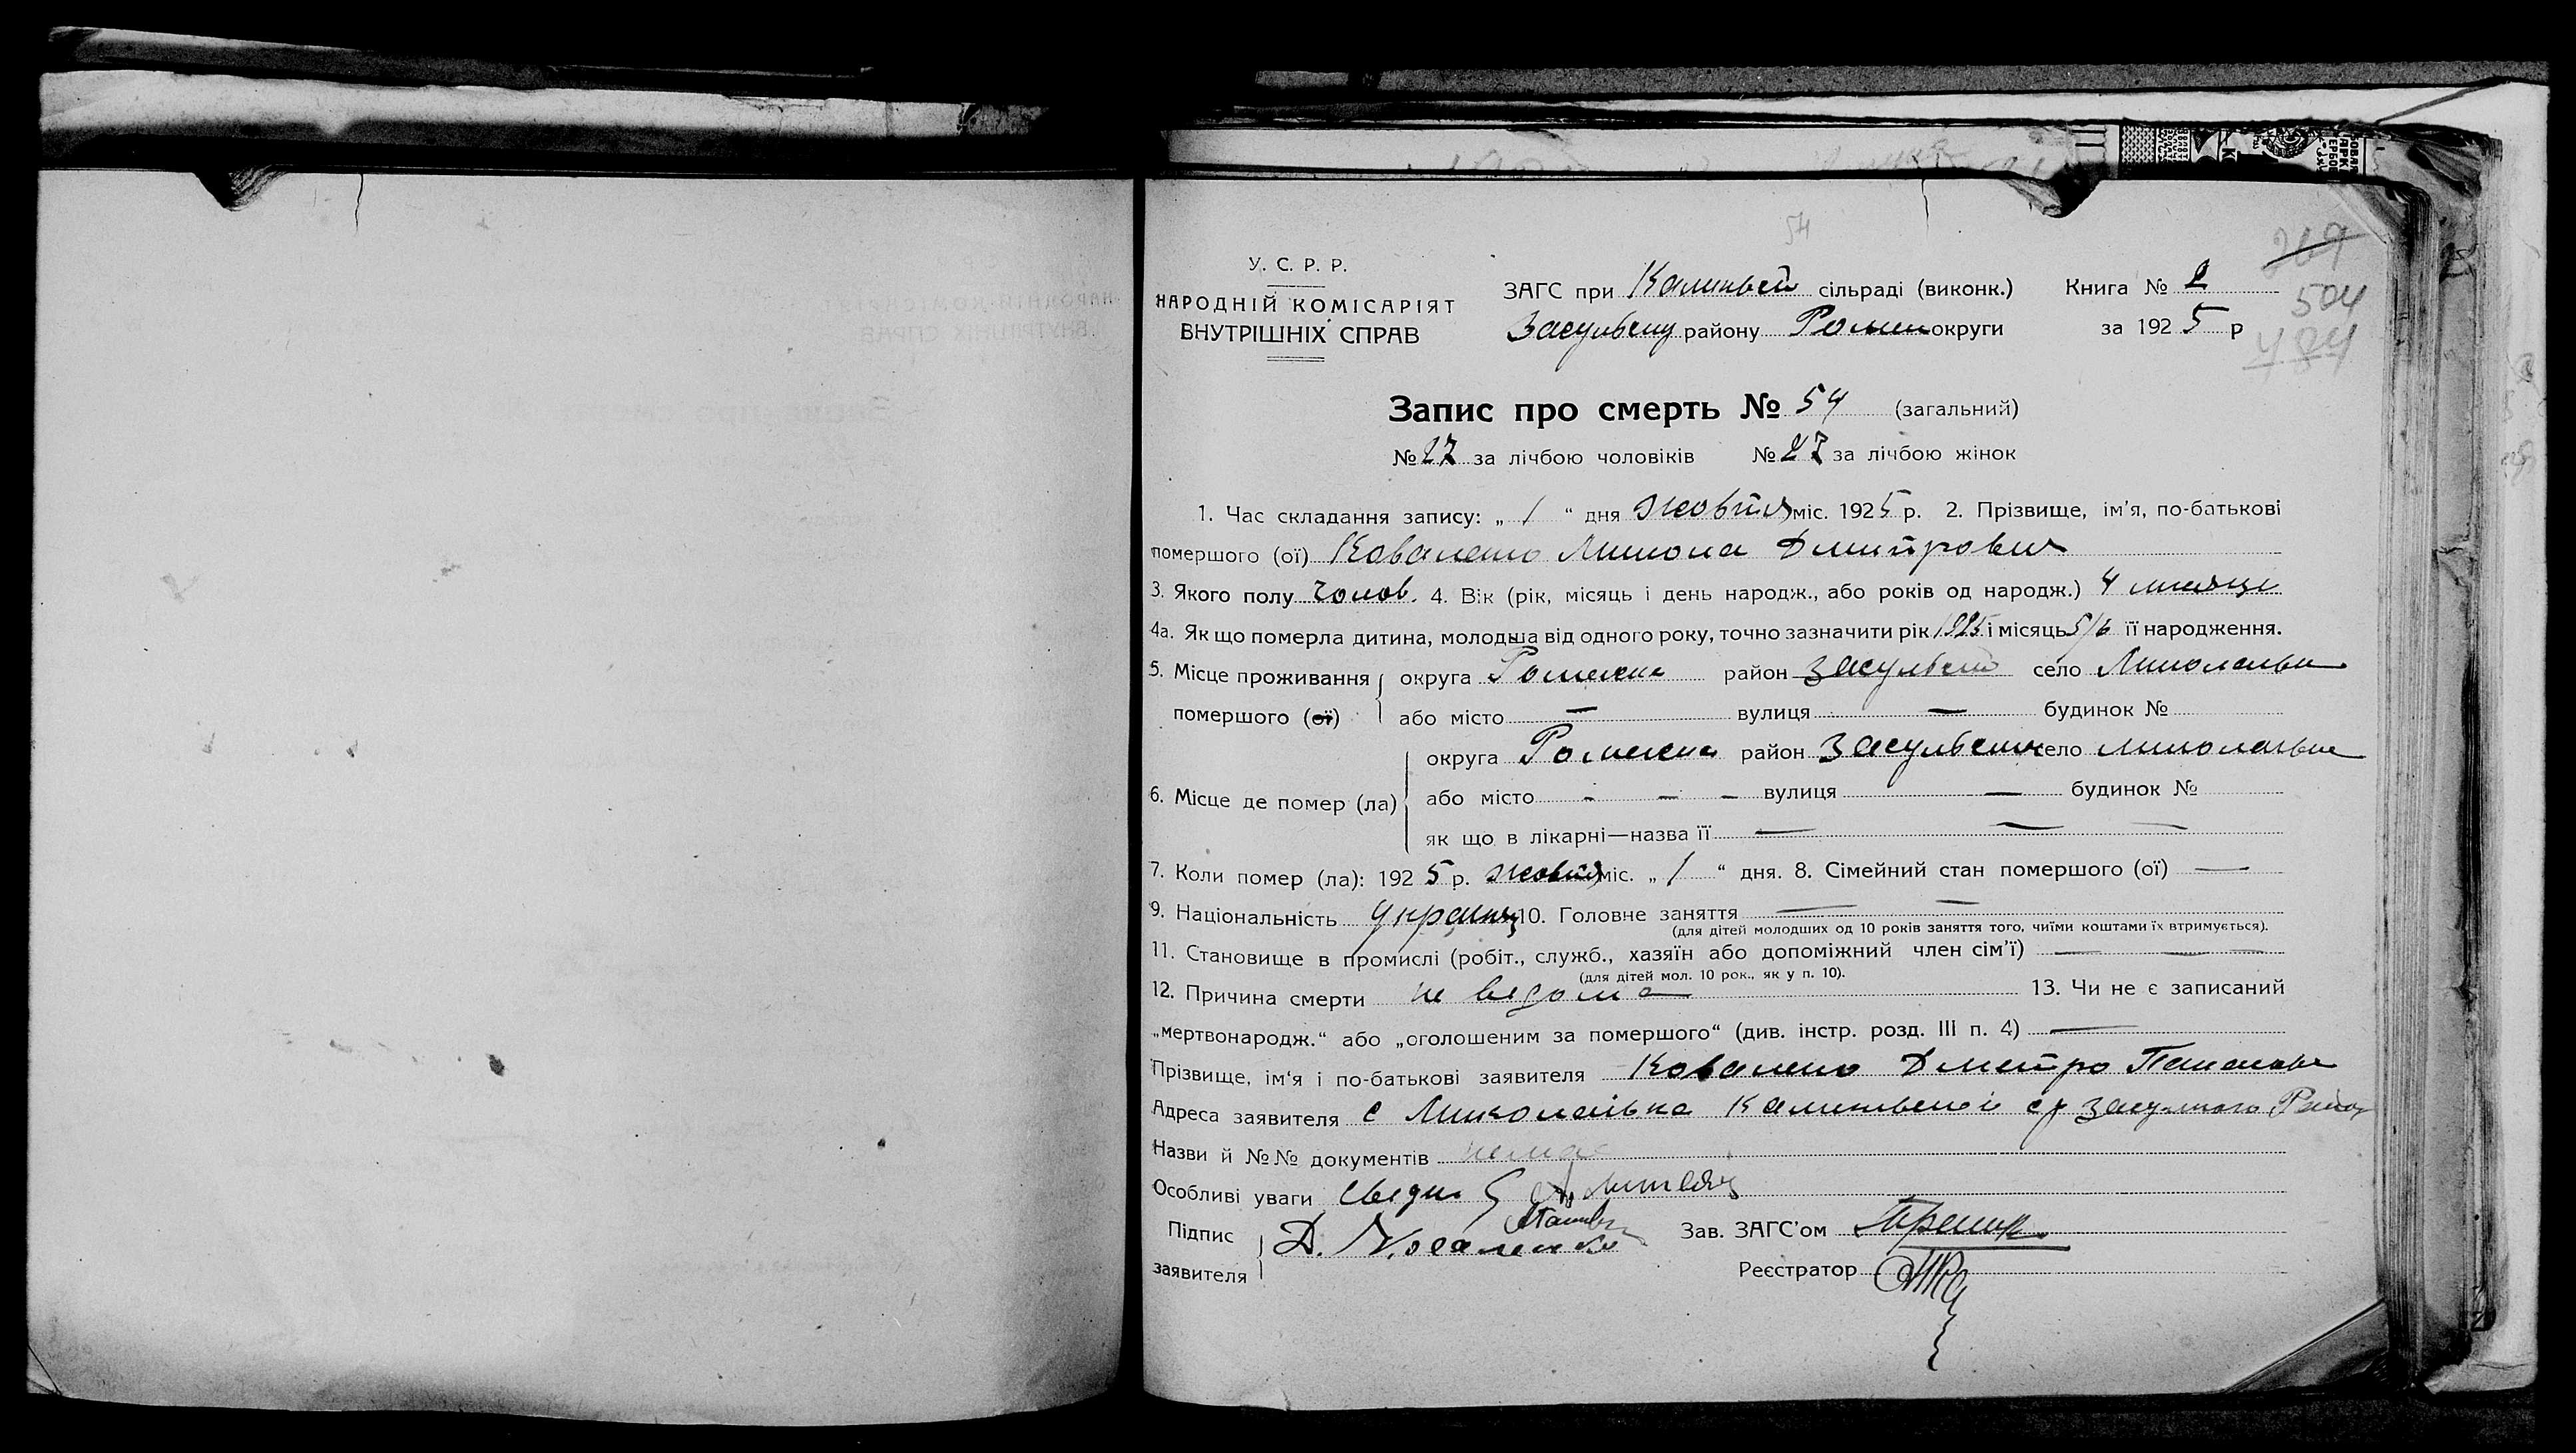 54
269
504
484
У. С. Р. Р.
НАРОДНІЙ КОМІСАРІЯТ
ВНУТРІШНІХ СПРАВ
ЗАГС при сільраді (виконк.) Книга № 2
району Ромен округи за 1925 р
Запис про смерть № 54 (загальний)
№ 27 за лічбою чоловіків № 27 за лічбою жінок
1. Час складання запису: „ 1 “ дня жовтня міс. 1925 р. 2. Прізвище, ім'я, по-батькові
помершого (ої) Коваленко Микола Дмитрович
3. Якого полу чолов. 4. Вік (рік, місяць і день народж., або років од народж.) 4 місяці
4а. Як що померла дитина, молодша від одного року, точно зазначити рік 1925 і місяць 5/6 її народження.
5. Місце проживання округа Роменска район Засульскій село Миколаївка
помершого (ої) або місто — вулиця — будинок №
округа Роменска район Засульский село Миколаївка
6. Місце де помер (ла) або місто - - - вулиця — будинок №
як що в лікарні—назва її — — —
7. Коли помер (ла): 1925 р. жовтня міс. „ 1 “ дня. 8. Сімейний стан помершого (ої) —
9. Національність Українц 10. Головне заняття — —
(для дітей молодших од 10 років заняття того, чиїми коштами їх втримується).
11. Становище в промислі (робіт., служб., хазяїн або допоміжний член сім'ї) — — —
(для дітей мол. 10 рок., як у п. 10).
12. Причина смерти не ведома 13. Чи не є записаний
„мертвонародж.“ або „оголошеним за помершого“ (див. інстр. розд. III п. 4) —
Прізвище, ім'я і по-батькові заявителя Коваленко Дметро
Адреса заявителя с Миколаівка
Назви й №№ документів немає
Особливі уваги
Підпис
заявителя Д. Коваленко
Зав. ЗАГС'ом
Реєстратор